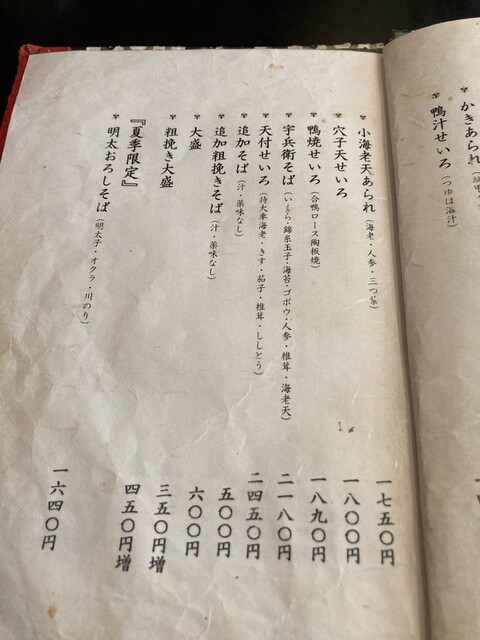 かきあられ
鴨汁せいろ（つゆは温汁）
小海老天あられ（海老・人参・三つ葉） 一七五〇円
穴子天せいろ 一八〇〇円
鴨焼せいろ（合鴨ロース陶板焼） 一八九〇円
宇兵衛そば（いくら・錦糸玉子・海苔・ゴボウ・人参・椎茸・海老天） 二一八〇円
天付せいろ（特大車海老・きす・茄子・椎茸・ししとう） 二四五〇円
追加そば（汁・薬味なし） 五〇〇円
追加粗挽きそば（汁・薬味なし） 六〇〇円
大盛 三五〇円増
粗挽き大盛 四五〇円増
『夏季限定』
明太おろしそば（明太子・オクラ・川のり） 一六四〇円